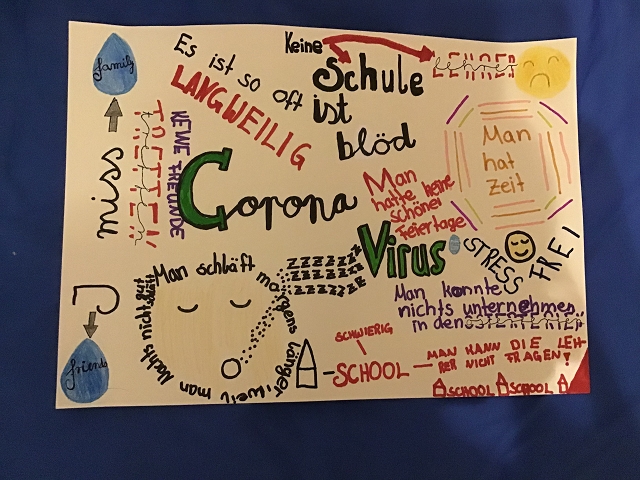 family
Es ist so oft
LANGWEILIG
Keine
Schule
ist
blöd
LEHRER
Lehrer
Man
hat
Zeit
KEINE FREUNDE
TREFFEN
treffen
I miss
friends
Corona
Virus
Man
hatte keine
schönen
Feiertage
STRESS
FREI
Man schläft morgens länger, weil man
Nachts nicht gut
schläft
ZZZZZZZZ
ZZZZZZZZ
ZZZZZZZ
Man konnte
nichts unternehmen
in den OSTERFERIEN
SCHWIERIG
SCHOOL
MAN KANN DIE LEH-
RER NICHT FRAGEN!
SCHOOL SCHOOL